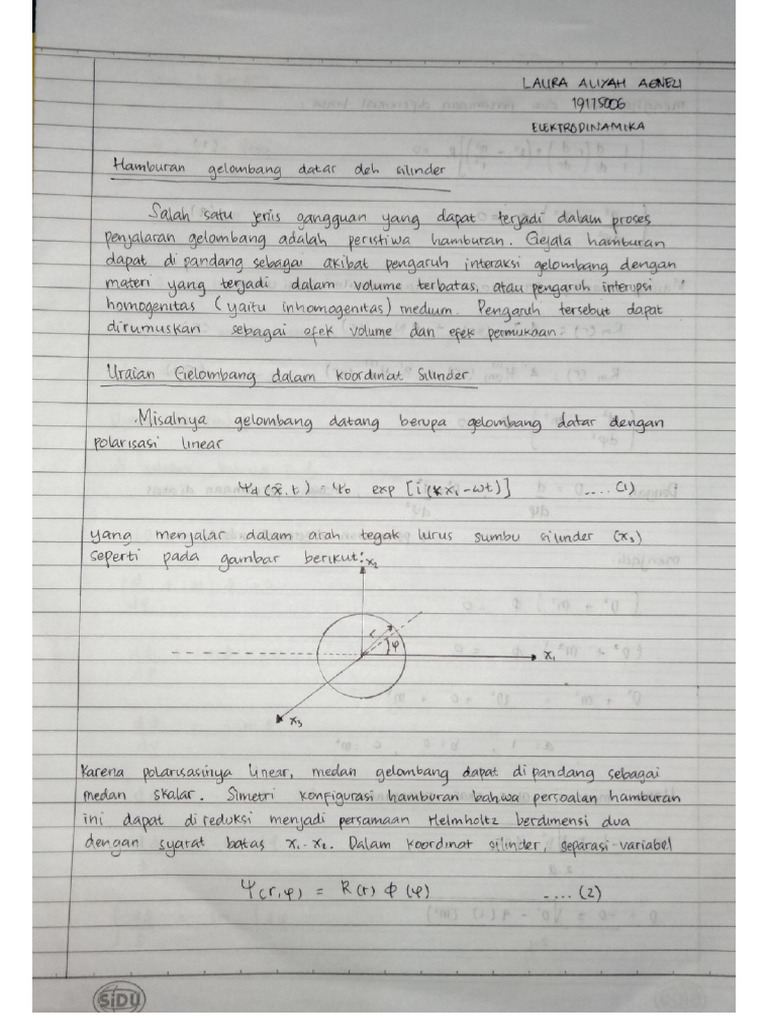 LAURA ALIYAH AGNEZI
19175006
ELEKTRODINAMIKA
Hamburan gelombang datar oleh silinder
Salah satu jenis gangguan yang dapat terjadi dalam proses
penjalaran gelombang adalah peristiwa hamburan. Gejala hamburan
dapat di pandang sebagai akibat pengaruh interaksi gelombang dengan
materi yang terjadi dalam volume terbatas, atau pengaruh interupsi
homogenitas (yaitu inhomogenitas) medium. Pengaruh tersebut dapat
dirumuskan sebagai efek volume dan efek permukaan.
Uraian Gelombang dalam koordinat Silinder
Misalnya gelombang datang berupa gelombang datar dengan
polarisasi linear
Ψd (x̄.t) = Ψ0 exp [i(kx₁-ωt)] ....(1)
yang menjalar dalam arah tegak lurus sumbu silinder (x₃)
seperti pada gambar berikut:
x₂
r
φ
x₁
x₃
Karena polarisasinya linear, medan gelombang dapat di pandang sebagai
medan skalar. Simetri konfigurasi hamburan bahwa persoalan hamburan
ini dapat di reduksi menjadi persamaan Helmholtz berdimensi dua
dengan syarat batas x₁-x₂. Dalam koordinat silinder, separasi variabel
Ψ(r,φ) = R(r) Φ(φ) ....(2)
SiDU